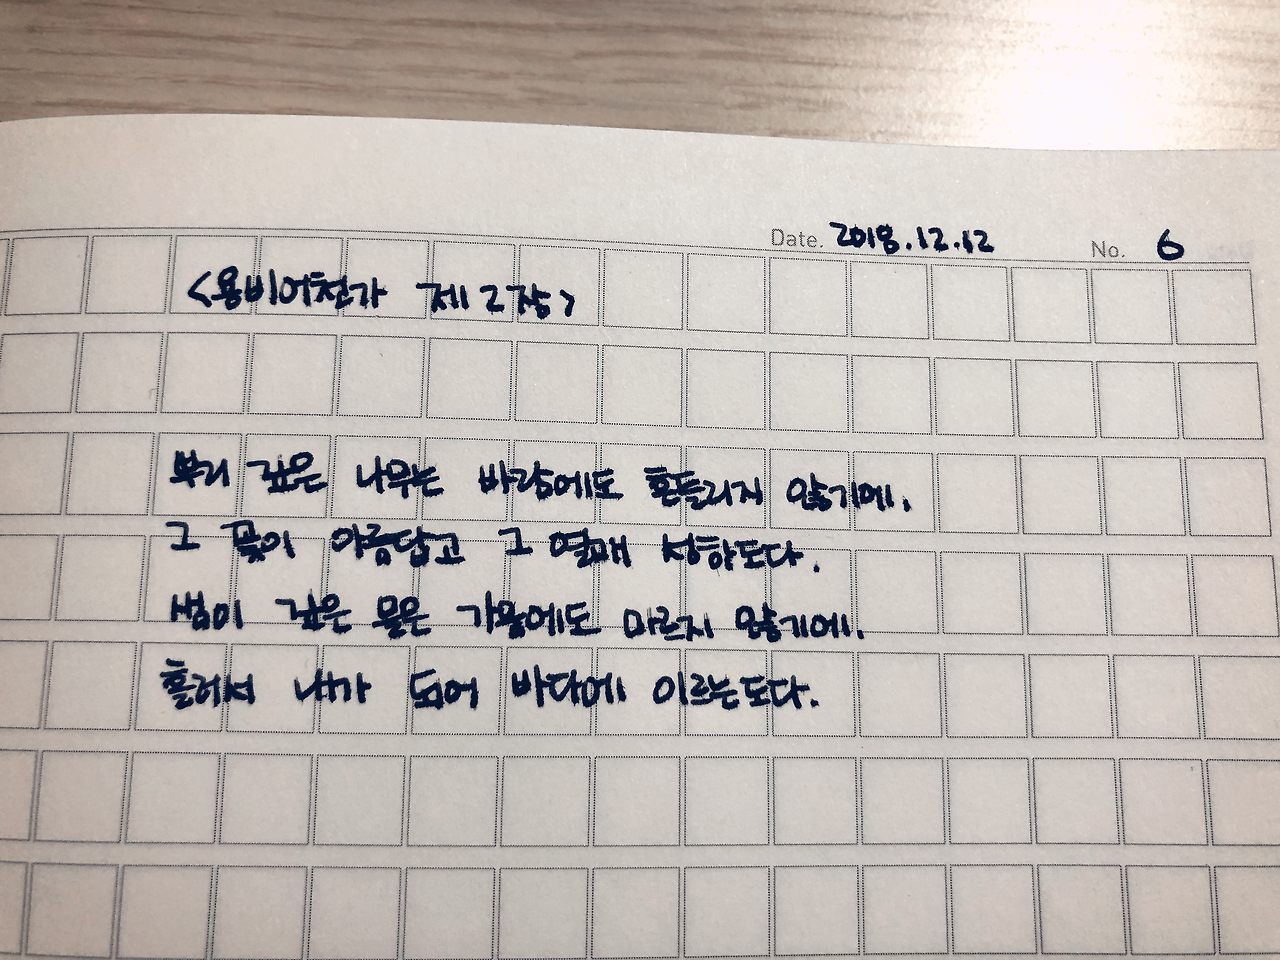 Date. 2018.12.12 No. 6
<용비어천가 제2장>
뿌리 깊은 나무는 바람에도 흔들리지 않기에.
그 꽃이 아름답고 그 열매 성하도다.
샘이 깊은 물은 가뭄에도 마르지 않기에.
흘러서 내가 되어 바다에 이르는도다.